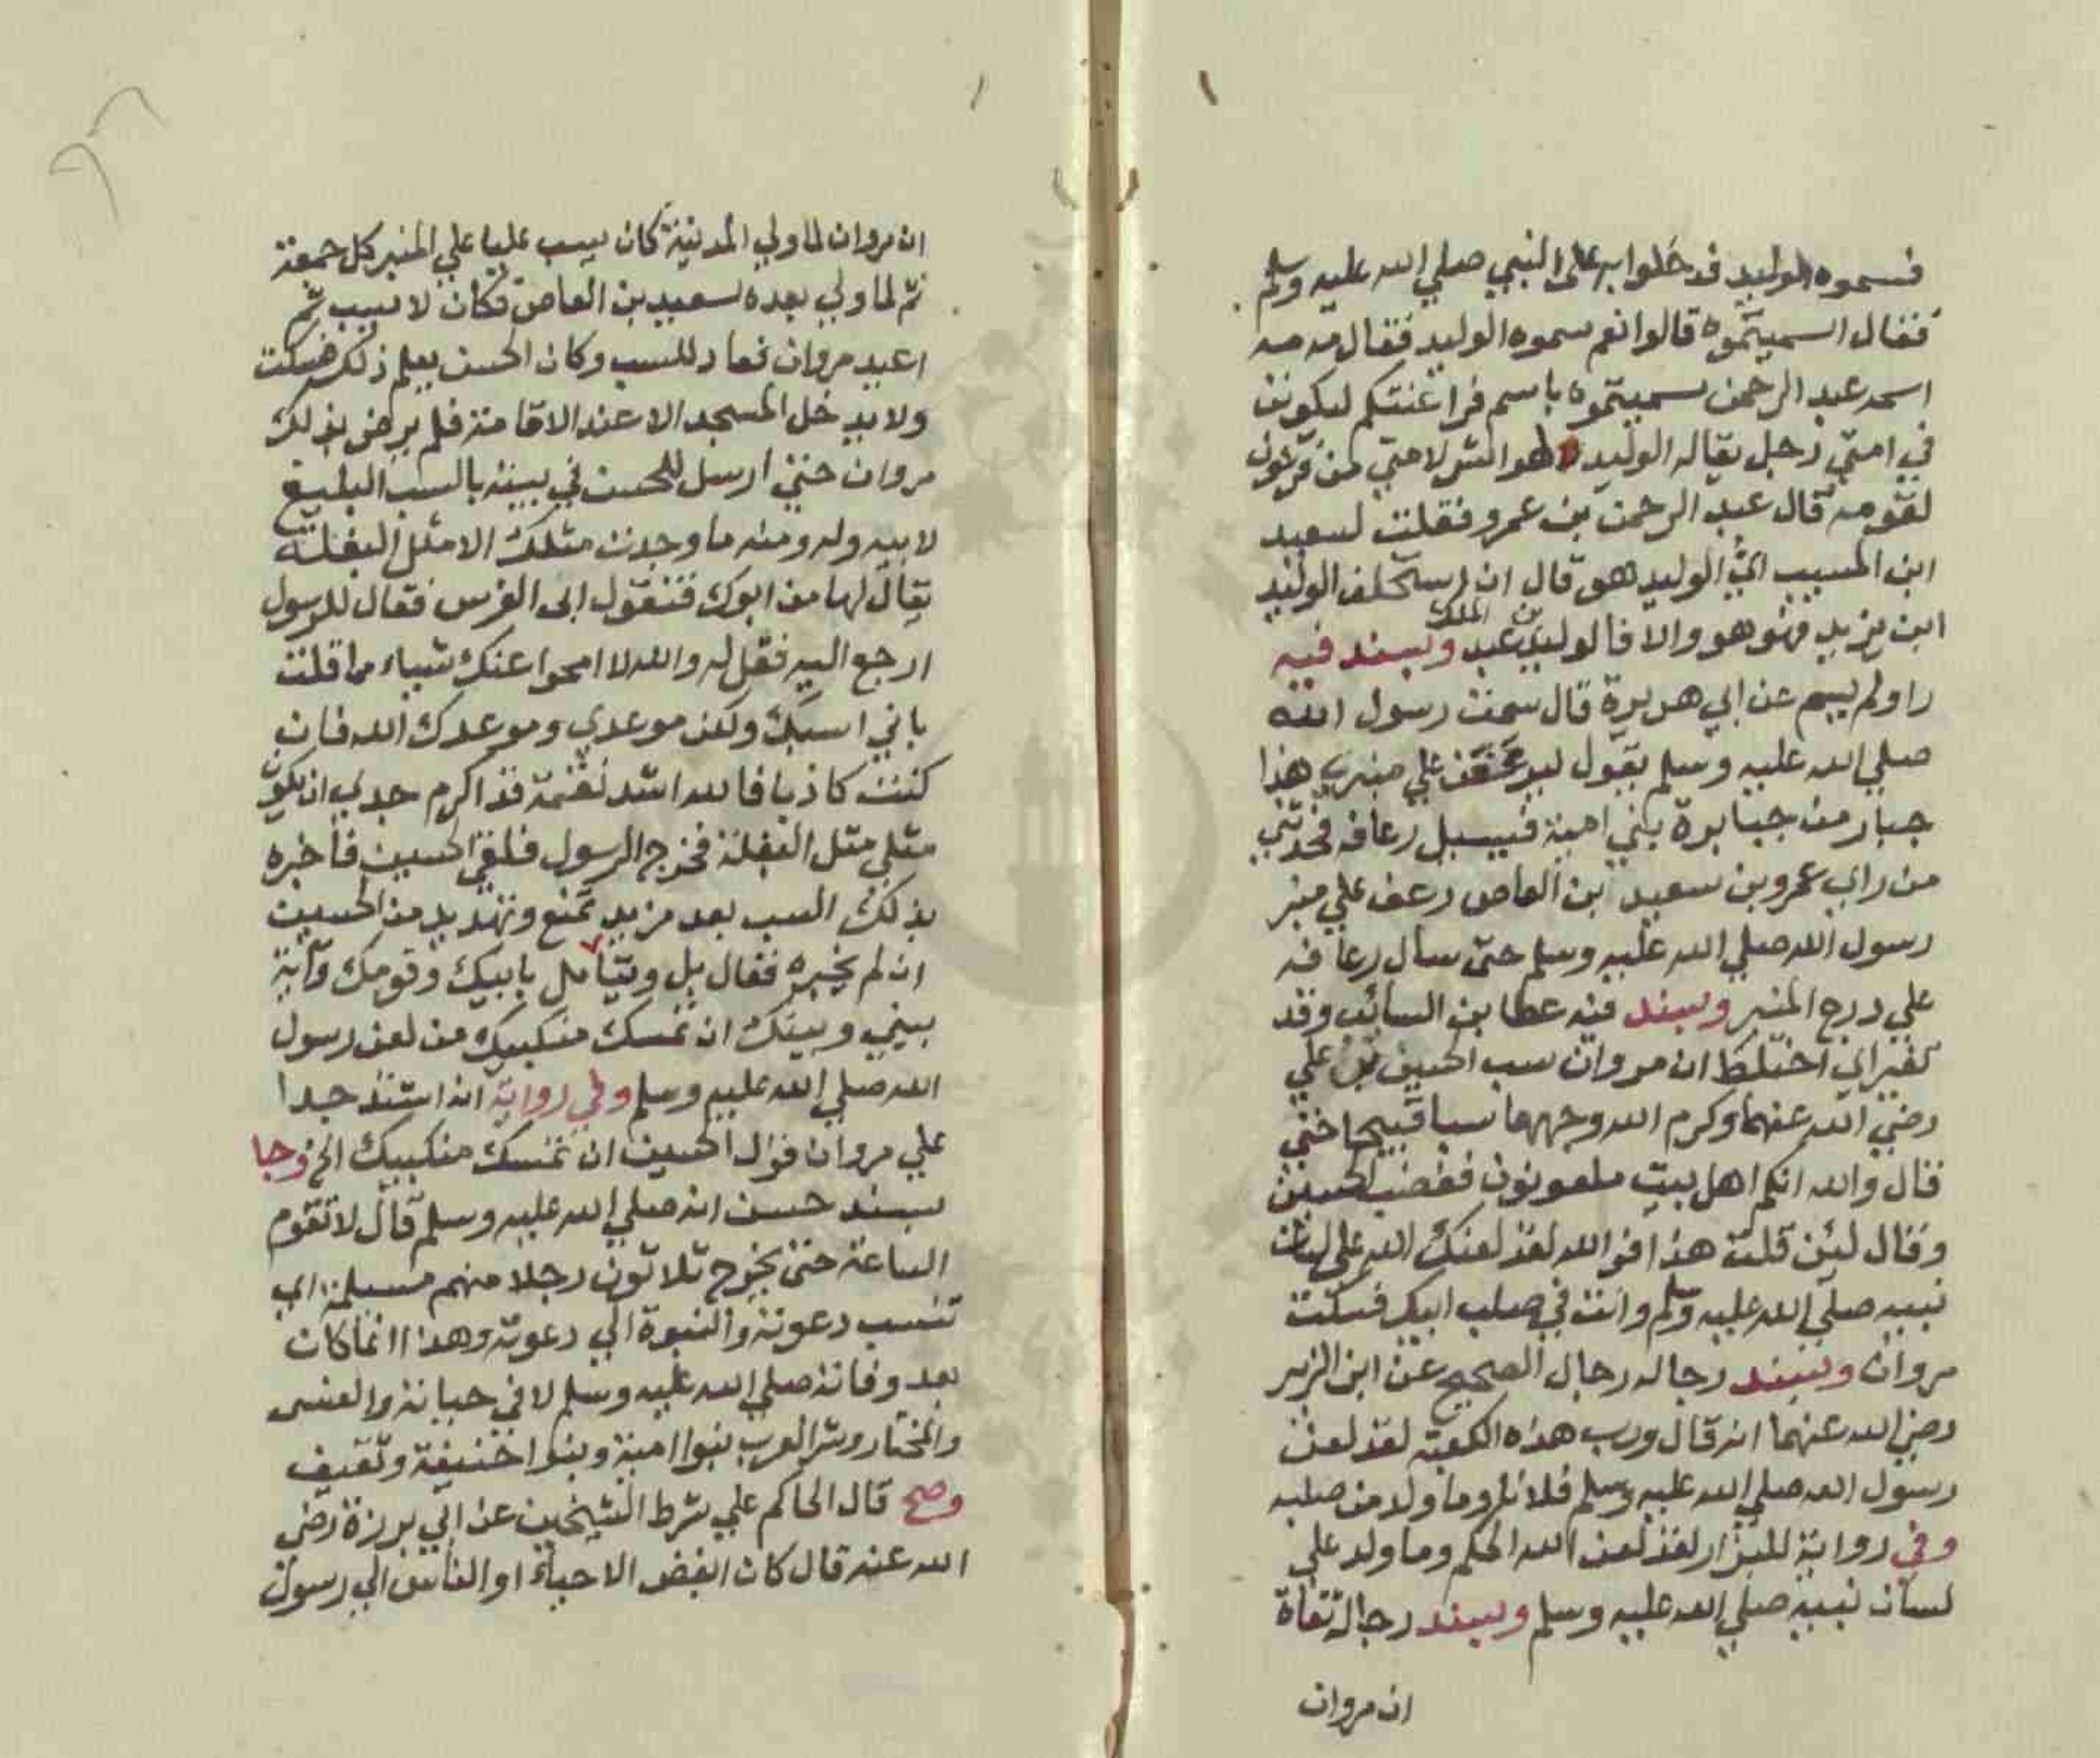 فسموه الوليد فدخلوا به على النبي صلي الله عليه وسلم
فقال اسميتموه قالوا نعم سموه الوليد فقال مه مه
اسمه عبد الرحمن سميتموه باسم فراعنتكم ليكونن
في امتي رجل يقاله الوليد لهو اشر لامتي من فرعون
لقومه قال عبد الرحمن بن عمرو فقلت لسعيد
ابن المسيب اي الوليد هو قال ان استخلف الوليد
ابن يزيد فهو هو والا فالوليد بن عبد الملك وبسند فيه
راو لم يسم عن ابي هريرة قال سمعت رسول الله
صلي الله عليه وسلم يقول ليرعفن علي منبري هذا
جبار من جبابرة بني امية فيسيل رعافه فحدثني
من راي عمرو بن سعيد ابن العاص رعف علي منبر
رسول الله صلي الله عليه وسلم حتى سال رعافه
علي درج المنبر وبسند فيه عطا بن السائب وقد
تغير اي اختلط ان مروان سب الحسين بن علي
رضي الله عنهما وكرم الله وجههما سبا قبيحا حتي
قال والله انكم اهل بيت ملعونون فغضب الحسين
وقال لئن قلت هذا فوالله لقد لعنك الله علي لسان
نبيه صلي الله عليه وسلم وانت في صلب ابيك فسكت
مروان وبسند رجاله رجال الصحيح عن ابن الزبير
رضي الله عنهما انه قال ورب هذه الكعبة لقد لعن
رسول الله صلي الله عليه وسلم فلانا وما ولد من صلبه
وفي رواية للبزار لقد لعن الله الحكم وما ولد علي
لسان نبيه صلي الله عليه وسلم وبسند رجاله ثقاة
ان مروان
ان مروان لما ولي المدينة كان يسب عليا علي المنبر كل جمعة
ثم لما ولي بعده سعيد بن العاص فكان لا يسب ثم
اعيد مروان فعاد للسب وكان الحسن يعلم ذلك فسكت
ولا يدخل المسجد الا عند الاقامة فلم يرض بذلك
مروان حتي ارسل للحسن في بيته بالسب البليغ
لابيه وله ومنه ما وجدت مثلك الا مثل البغلة
يقال لها من ابوك فتقول ابي الفرس فقال للرسول
ارجع اليه فقل له والله لا امحوا عنك شياء مما قلت
باني اسبك ولكن موعدي وموعدك الله فان
كنت كاذبا فالله اشد نقمة قد اكرم جدي ان يكون
مثلي مثل البغلة فخرج الرسول فلقي الحسين فاخبره
بذلك السب بعد مزيد تمنع وتهديد من الحسين
ان لم يخبره فقال بل و بابيك وقومك وآية
بيني وبينك ان تمسك منكبيك من لعن رسول
الله صلي الله عليه وسلم وفي رواية انه اشتد جدا
علي مروان قول الحسين ان تمسك منكبيك الخ وجا
بسند حسن انه صلي الله عليه وسلم قال لا تقوم
الساعة حتى يخرج ثلاثون رجلا منهم مسيلمة اي
تنسب دعوته والنبوة الي دعوته وهذا انما كان
بعد وفاته صلي الله عليه وسلم لا في حياته والعنسى
والمختار وشر العرب بنوا امية وبنوا حنيفة وثقيف
وصح قال الحاكم علي شرط الشيخين عن ابي برزة رضي
الله عنه قال كان ابغض الاحياء او الناس الي رسول